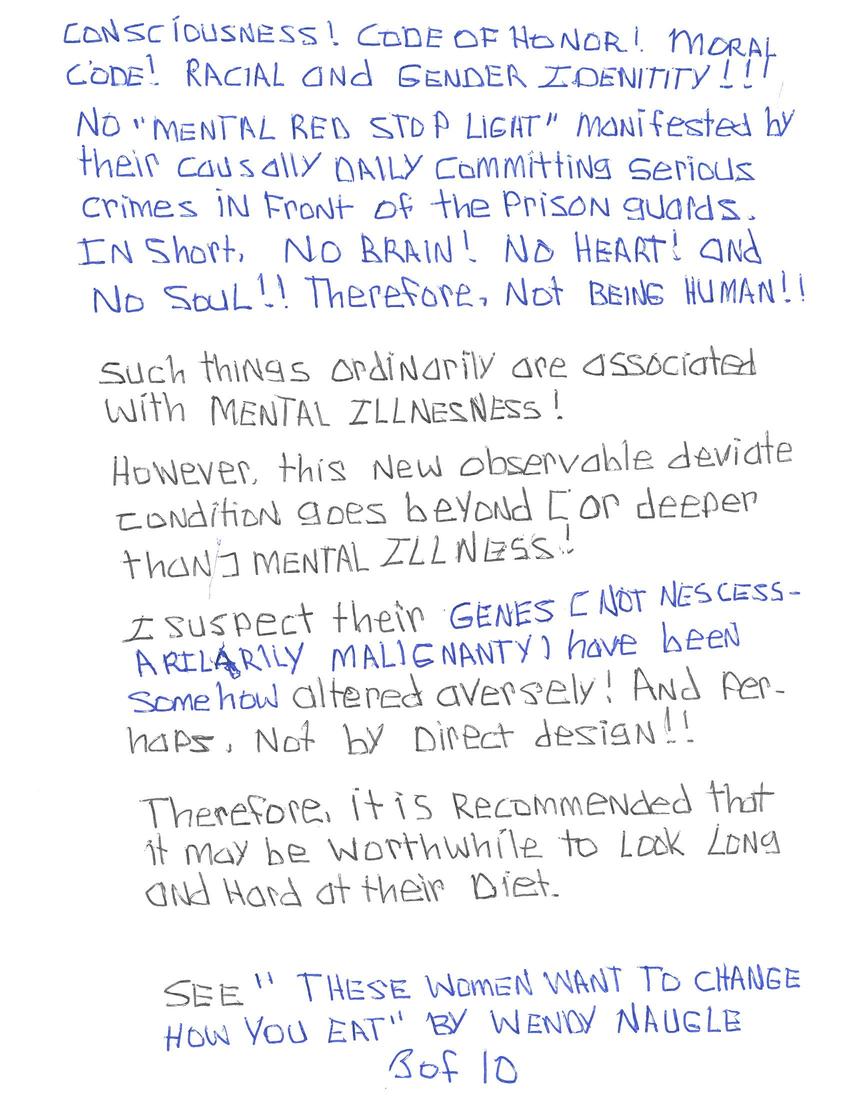 CONSCIOUSNESS! CODE OF HONOR! MORAL
CODE! RACIAL and GENDER IDENITITY!!!
NO "MENTAL RED STOP LIGHT" manifested by
their causally DAILY committing serious
crimes in Front of the Prison guards.
IN Short, NO BRAIN! NO HEART! and
No Soul!! Therefore, Not BEING HUMAN!!
Such things ordinarily are associated
with MENTAL ILLNESNESS!
However, this New observable deviate
condition goes beyond [or deeper
than] MENTAL ILLNESS!
I suspect their GENES [NOT NESCESS-
ARILARILY MALIGNANTY) have been
somehow altered aversely! And Per-
haps, Not by Direct design!!
Therefore, it is Recommended that
it may be worthwhile to Look Long
and Hard at their Diet.
SEE "THESE WOMEN WANT TO CHANGE
HOW YOU EAT" BY WENDY NAUGLE
3 of 10